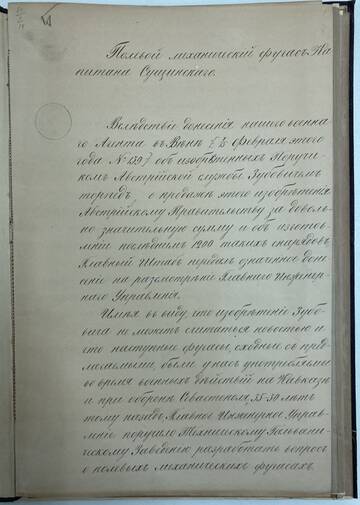 Полевой механическій фугасъ Ка
питана Сущинскаго.
Вслѣдствіе донесенія нашего военна
го Агента въ Вѣнѣ февраля этого
года № 139 объ изобрѣтенныхъ Поручи
комъ Австрійской службы Зубовичемъ
торпедъ, о продажѣ этого изобрѣтенія
Австрійскому Правительству за доволь
но значительную сумму и объ изготов
леніи послѣднимъ 1200 такихъ снарядовъ,
Главный Штабъ передалъ означенное доне
сеніе на разсмотрѣніе Главнаго Инженер
наго Управленія.
Имѣя въ виду, что изобрѣтеніе Зубо
вича не можетъ считаться новостью и
что наступные фугасы, сходные съ пред
лагаемыми, были у насъ употребляемы
во время военныхъ дѣйствій на Кавказѣ
и при оборонѣ Севастополя, 25-30 лѣтъ
тому назадъ, Главное Инженерное Управ
леніе поручило Техническому Гальвани
ческому Заведенію разработать вопросъ
о полевыхъ механическихъ фугасахъ.